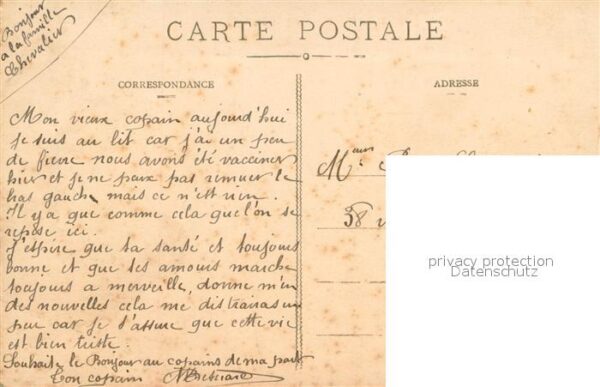 Bonjour
a la famille
Chevalier
CARTE POSTALE
CORRESPONDANCE
Mon vieux copain aujourd'hui
je suis au lit car j'ai un peu
de fievre nous avons été vacciner
hier et je ne peux pas remuer le
bras gauche mais ce n'est rien.
Il y a que comme cela que l'on se
repose ici.
J'espère que ta santé et toujours
bonne et que tes amours marche
toujours a merveille, donne m'en
des nouvelles cela me distraira un
peu car je t'assure que cette vie
est bien triste.
Souhaite le Bonjour au copains de ma part
Ton copain
ADRESSE
58
privacy protection
Datenschutz